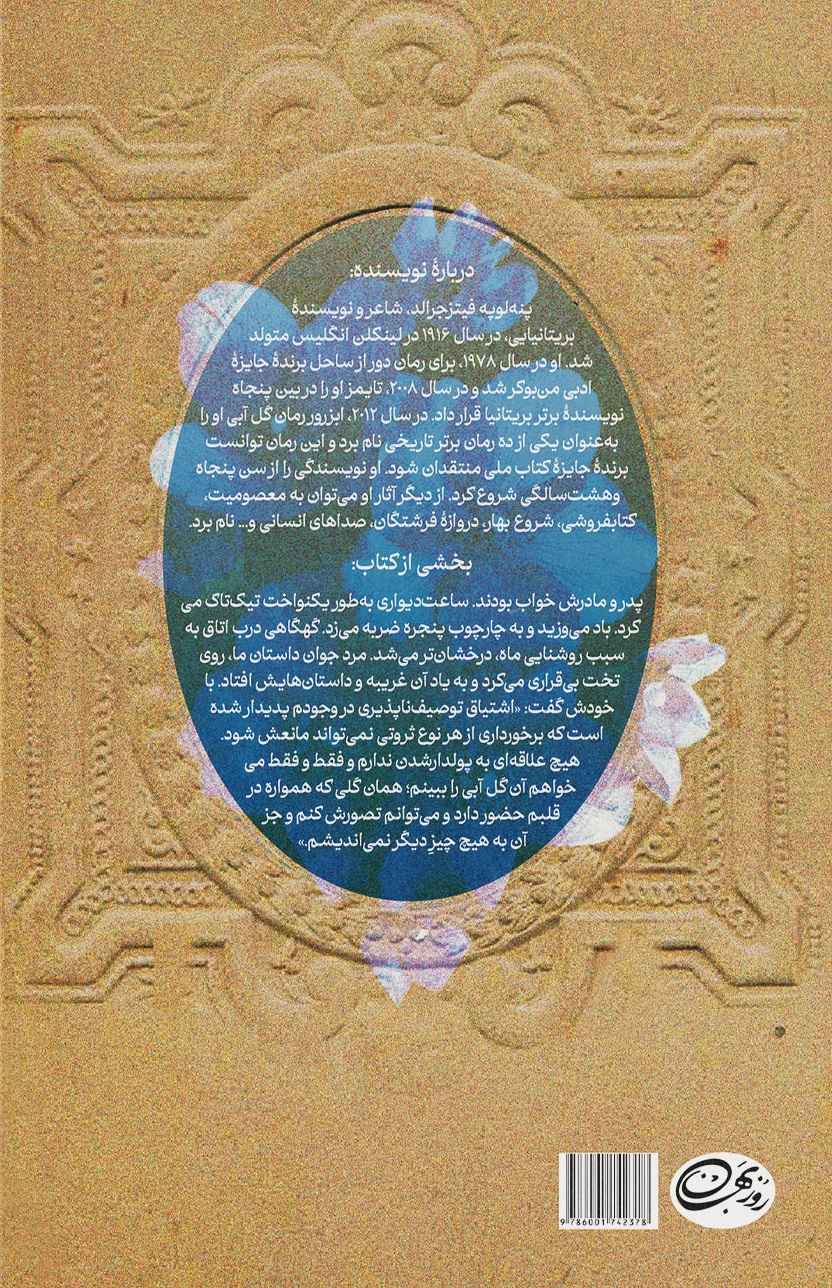 دربارهٔ نویسنده:
پنه‌لوپه فیتزجرالد، شاعر و نویسندهٔ
بریتانیایی، در سال ۱۹۱۶ در لینکلن انگلیس متولد
شد. او در سال ۱۹۷۸، برای رمان دور از ساحل برندهٔ جایزهٔ
ادبی من‌بوکر شد و در سال ۲۰۰۸، تایمز او را در بین پنجاه
نویسندهٔ برتر بریتانیا قرار داد. در سال ۲۰۱۲، ابزرور رمان گل آبی او را
به‌عنوان یکی از ده رمان برتر تاریخی نام برد و این رمان توانست
برندهٔ جایزهٔ کتاب ملی منتقدان شود. او نویسندگی را از سن پنجاه
وهشت‌سالگی شروع کرد. از دیگر آثار او می‌توان به معصومیت،
کتابفروشی، شروع بهار، دروازهٔ فرشتگان، صداهای انسانی و... نام برد.
بخشی از کتاب:
پدر و مادرش خواب بودند. ساعت‌دیواری به‌طور یکنواخت تیک‌تاک می
کرد. باد می‌وزید و به چارچوب پنجره ضربه می‌زد. گهگاهی درب اتاق به
سبب روشنایی ماه، درخشان‌تر می‌شد. مرد جوان داستان ما، روی
تخت بی‌قراری می‌کرد و به یاد آن غریبه و داستان‌هایش افتاد. با
خودش گفت: «اشتیاق توصیف‌ناپذیری در وجودم پدیدار شده
است که برخورداری از هر نوع ثروتی نمی‌تواند مانعش شود.
هیچ علاقه‌ای به پولدارشدن ندارم و فقط و فقط می
خواهم آن گل آبی را ببینم؛ همان گلی که همواره در
قلبم حضور دارد و می‌توانم تصورش کنم و جز
آن به هیچ چیزِ دیگر نمی‌اندیشم.»
روزبهان
9786001742378